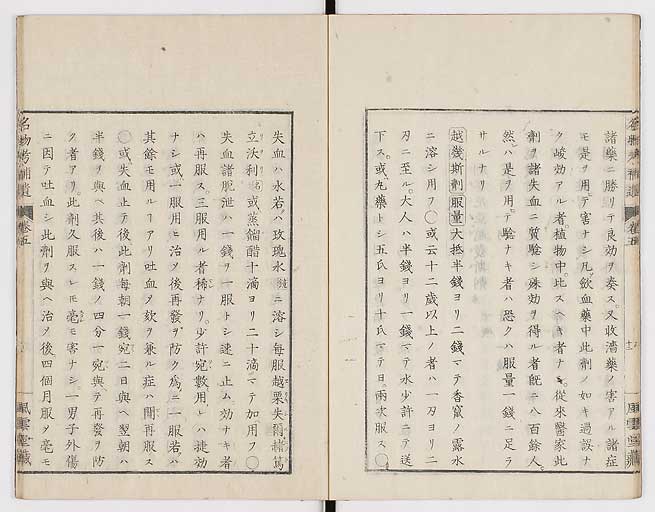 諸藥ニ勝リテ良効ヲ奏ス。又收濇藥ノ害アル諸症
モ是ヲ用テ害ナシ凡歛血藥中此劑ノ如キ過誤ナ
ク峻効アル者。植物中。比スベキ者ナシ。從來醫家此
劑ヲ諸失血ニ質驗シ殊効ヲ得ル者既ニ八百餘人。
然ハ是ヲ用テ驗ナキ者ハ恐クハ服量一錢ニ足ラ
サルナリ
越幾斯劑 服量 大抵半錢ヨリ二錢マテ香竄ノ露水
ニ溶シ用フ〇或云十二歲以上ノ者ハ一刃ヨリ二
刃ニ至ル。大人ハ半錢ヨリ一錢マテ水少許ニテ送
下ス。或丸藥トシ五氏ヨリ十氏マテ日。兩次服ス。
失血ハ水若ハ玫瑰水ニ溶シ每服越栗失爾
立沃利或蒸餾醋十滴ヨリ二十滴マテ加用フ〇
失血諸脫泄ハ一錢ヲ一服トシ速ニ止ム効ナキ者
ハ再服ス。三服用ル者稀ナリ。少許宛數用レハ捷効
ナシ或一服用ヒ治ノ後再發ヲ防ク爲ニ一服若ハ
其餘モ用ルヿアリ吐血メ欬ヲ兼ル症ハ間再服ス
〇或失血止テ後此劑每朝一錢宛二日與ヘ翌朝ハ
半錢ヲ與ヘ其後ハ一錢ノ四分一宛與テ再發ヲ防
ク者アリ。此劑久服スレモ毫モ害ナシ一男子外傷
ニ因テ吐血シ此劑ヲ與ヘ治ノ後四個月服メ毫モ
名物考補遺 卷五
風雲堂藏